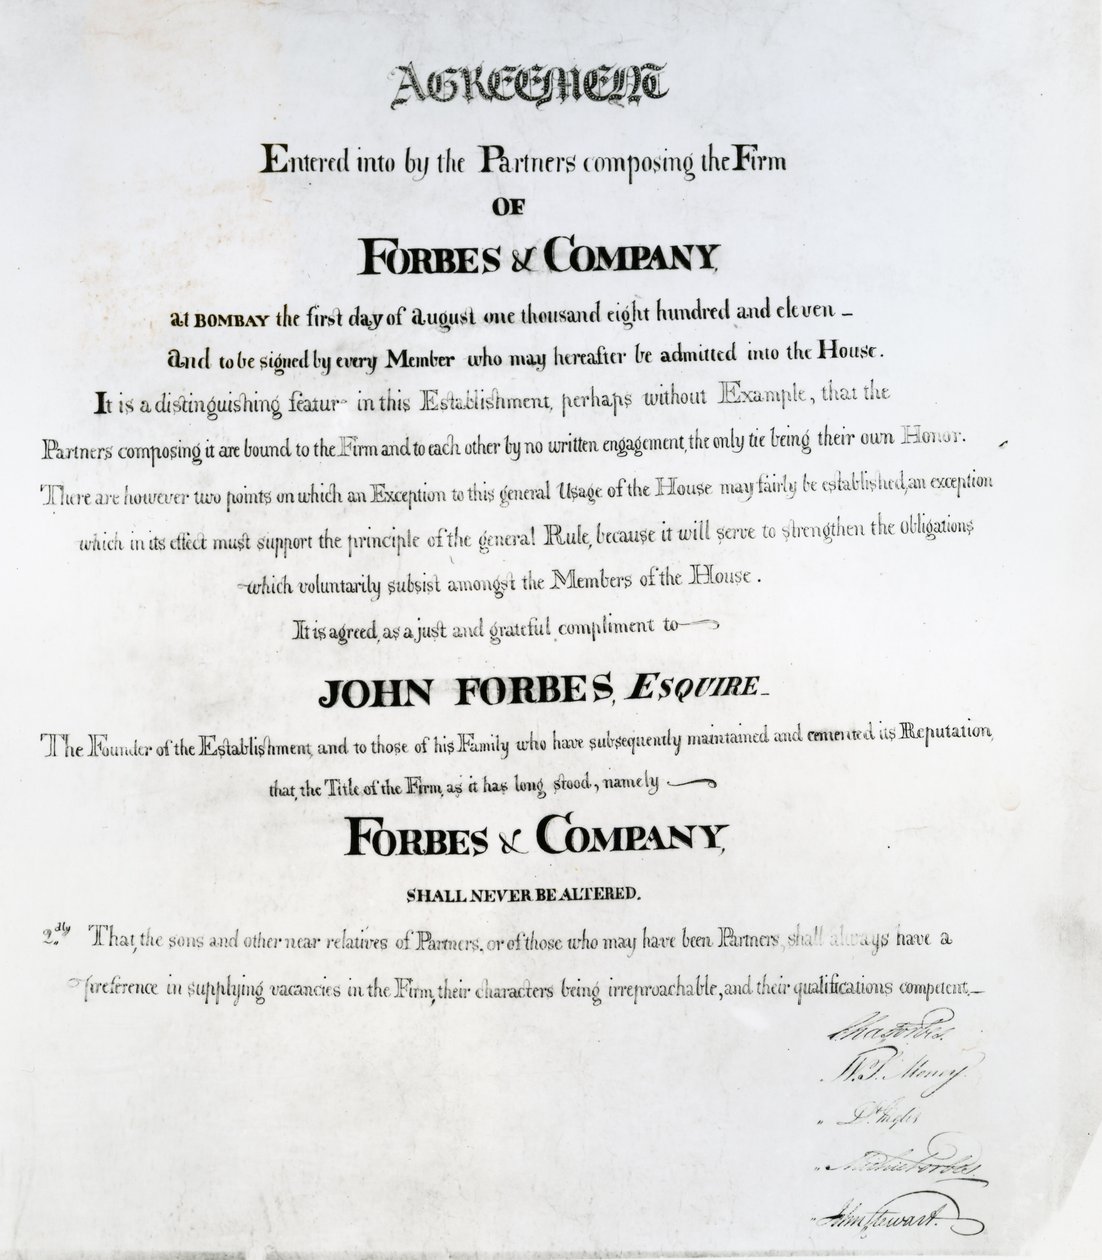 AGREEMENT
Entered into by the Partners composing the Firm
OF
FORBES & COMPANY,
at BOMBAY the first day of August one thousand eight hundred and eleven –
And to be signed by every Member who may hereafter be admitted into the House.
It is a distinguishing feature in this Establishment, perhaps without Example, that the
Partners composing it are bound to the Firm and to each other by no written engagement, the only tie being their own Honor.
There are however two points on which an Exception to this general Usage of the House may fairly be established, an exception
which in its effect must support the principle of the general Rule, because it will serve to strengthen the obligations
which voluntarily subsist amongst the Members of the House.
It is agreed, as a just and grateful compliment to
JOHN FORBES, ESQUIRE –
The Founder of the Establishment, and to those of his Family who have subsequently maintained and cemented its Reputation,
that, the Title of the Firm, as it has long stood, namely
FORBES & COMPANY,
SHALL NEVER BE ALTERED.
2.dly That, the sons and other near relatives of Partners, or of those who may have been Partners, shall always have a
preference in supplying vacancies in the Firm, their characters being irreproachable, and their qualifications competent, –
Chas Forbes.
W. T. Money.
" D. Inglis
" Michie Forbes.
" John Stewart.